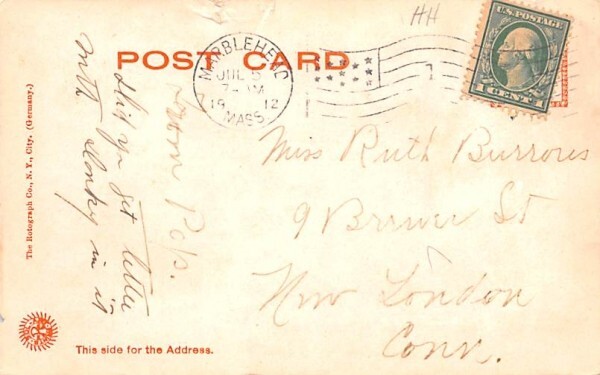 HH
POST CARD
MARBLEHEAD
JUL 5
7-PM
1912
MASS.
1
U.S. POSTAGE
1 CENT 1
Miss Ruth Burrows
9 Brewer St
New London
Conn.
did you get letter
with in it
from
The Rotograph Co., N. Y., City. (Germany.)
This side for the Address.